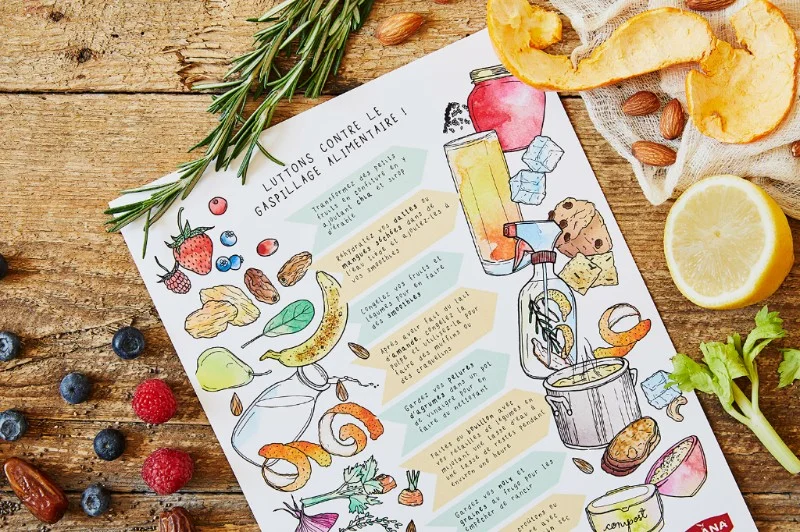 LUTTONS CONTRE LE
GASPILLAGE ALIMENTAIRE !
Transformez des petits
fruits en confiture en y
ajoutant chia et sirop
d'érable
Réhydratez vos dattes ou
mangues séchées dans de
l'eau tiède et ajoutez-les à
vos smoothies
Congelez vos fruits et
légumes pour en faire
des smoothies
Après avoir fait du lait
d'amande, congelez la
pulpe et utilisez-la pour
faire des muffins ou
des craquelins
Gardez vos pelures
d'agrumes dans un pot
de vinaigre pour en
faire du nettoyant
Faites du bouillon avec
les retailles de légumes en
mijotant
d'eau à
la tasse de restes pendant
environ une heure
Gardez vos noix et
graines au frigo pour les
empêcher de rancir
compost
ANA